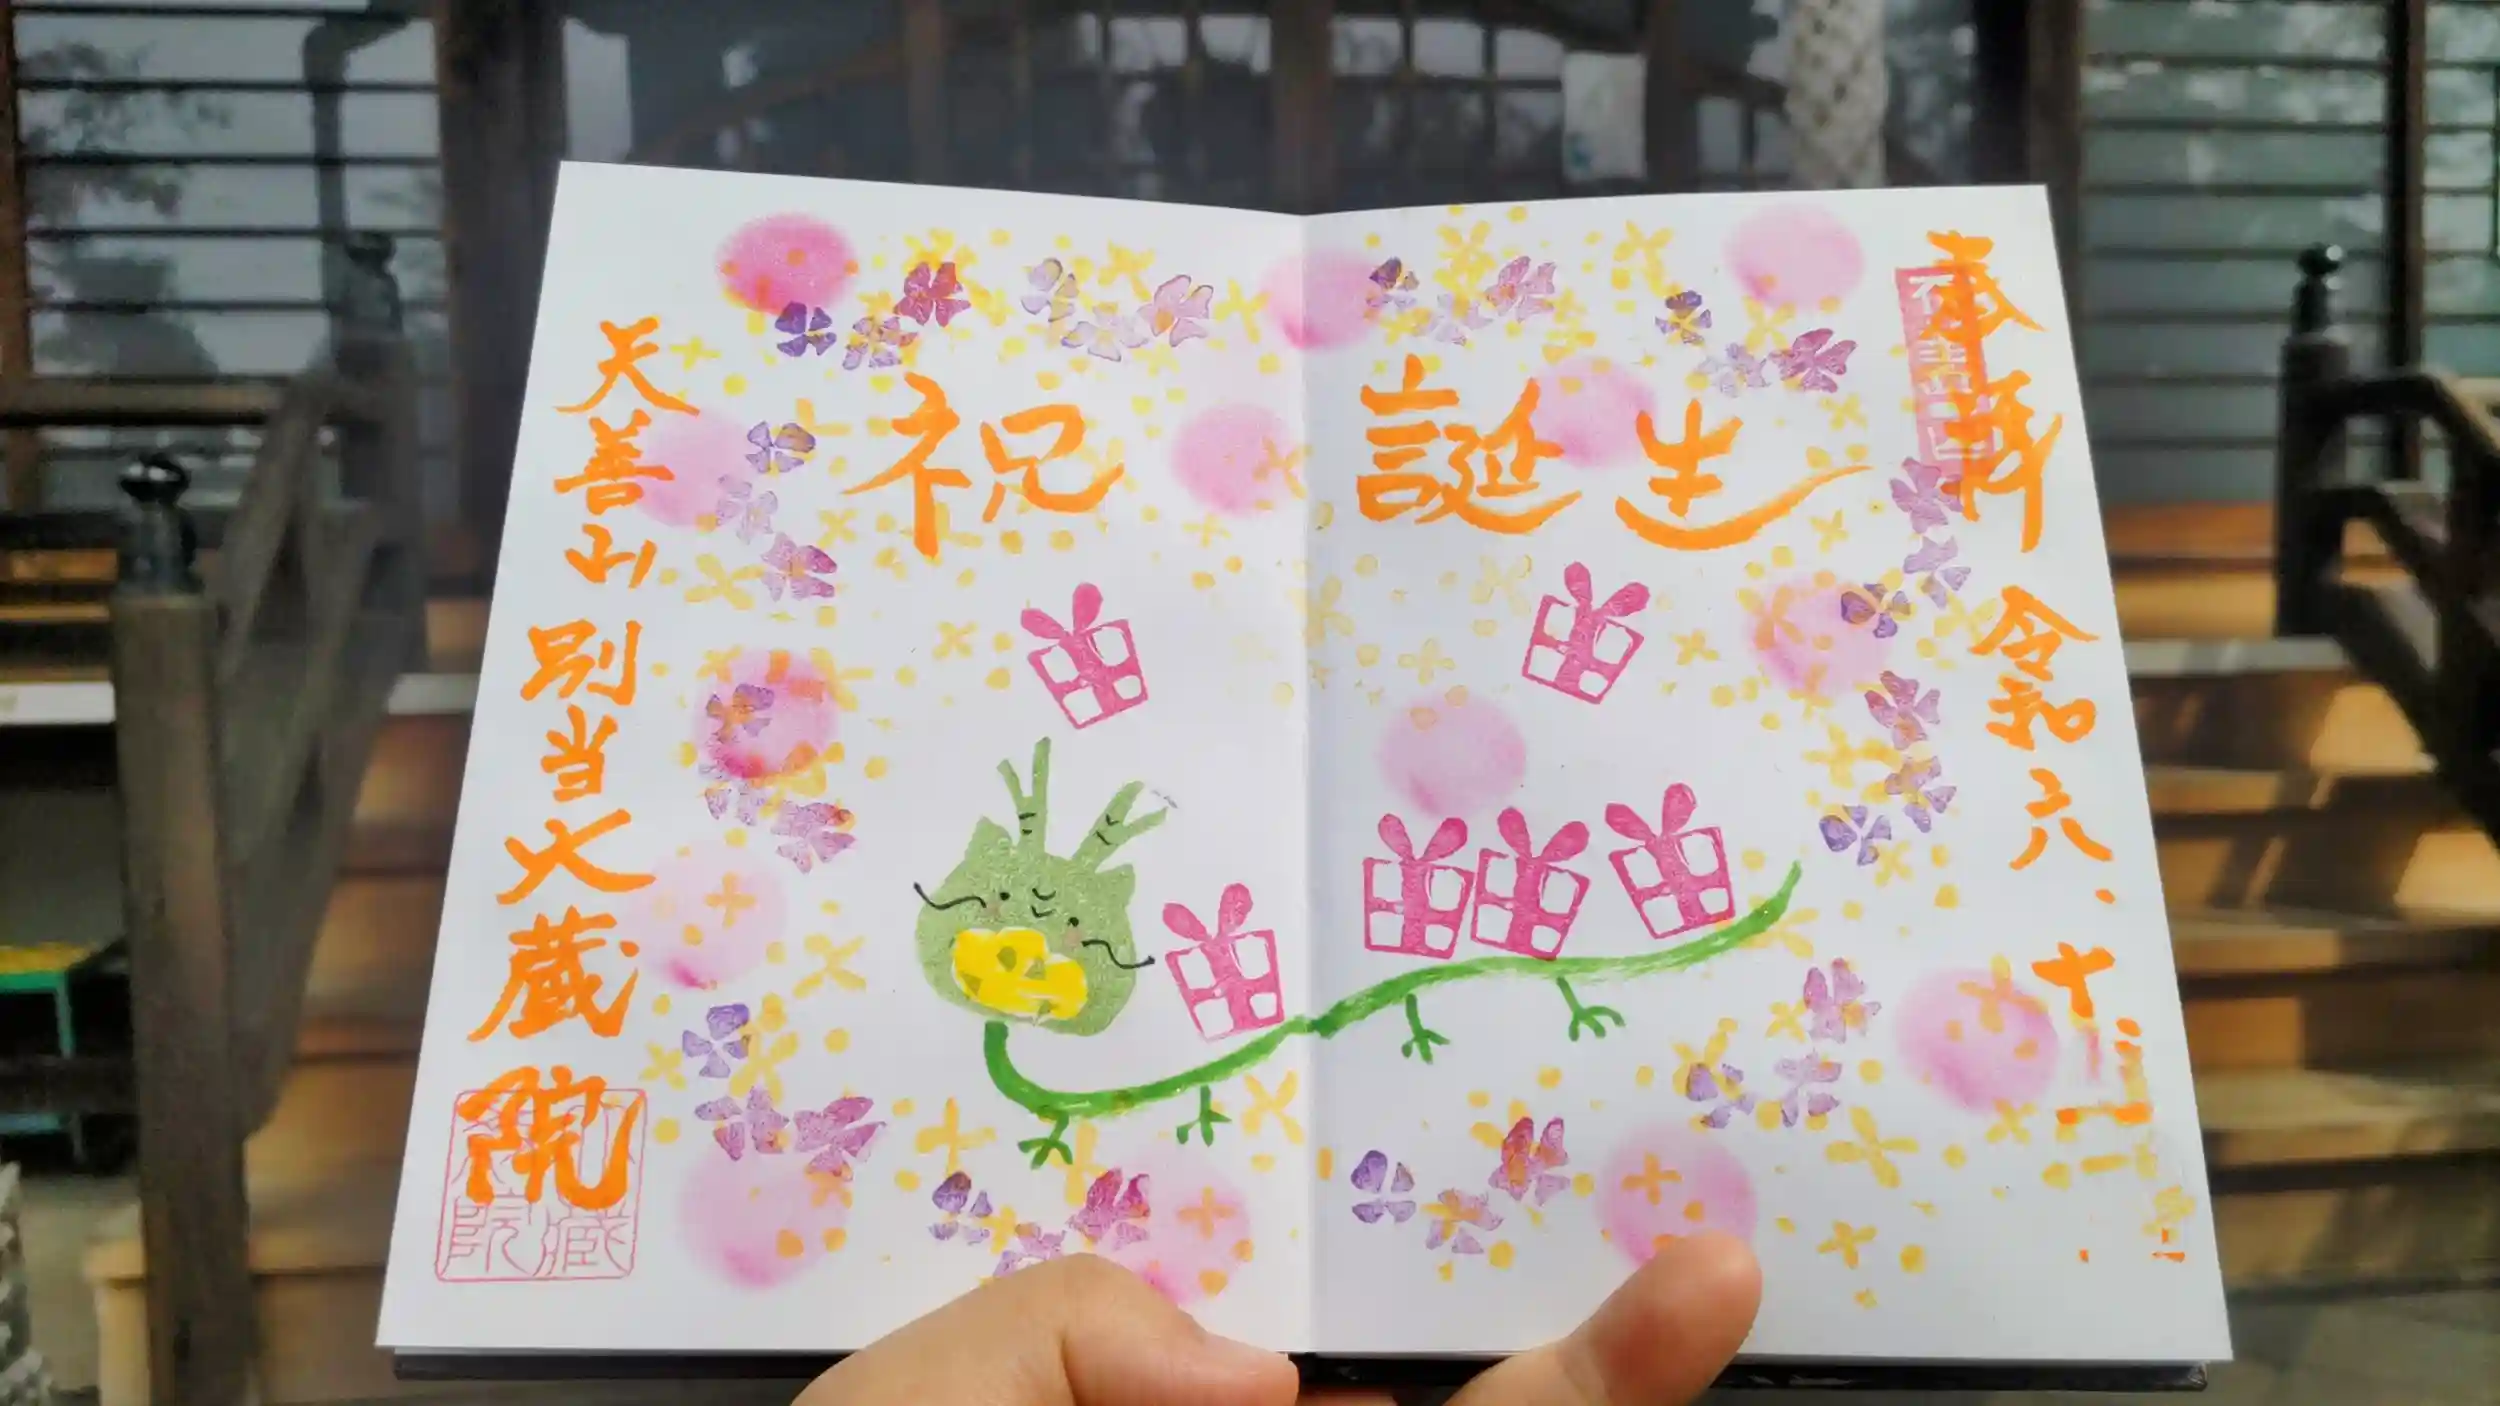 奉拝 令和六、十二
誕生
祝
天善山 別当大蔵院